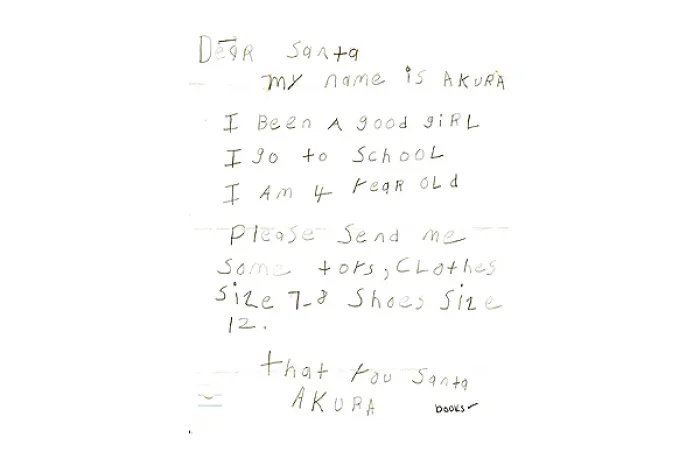 Dear Santa
my name is AKURA
I Been A good giRL
I go to SchooL
I Am 4 YeaR oLd
PLease Send me
some toys, CLothes
Size 7-8 Shoes Size
12.
that You Santa
AKURA
books✓